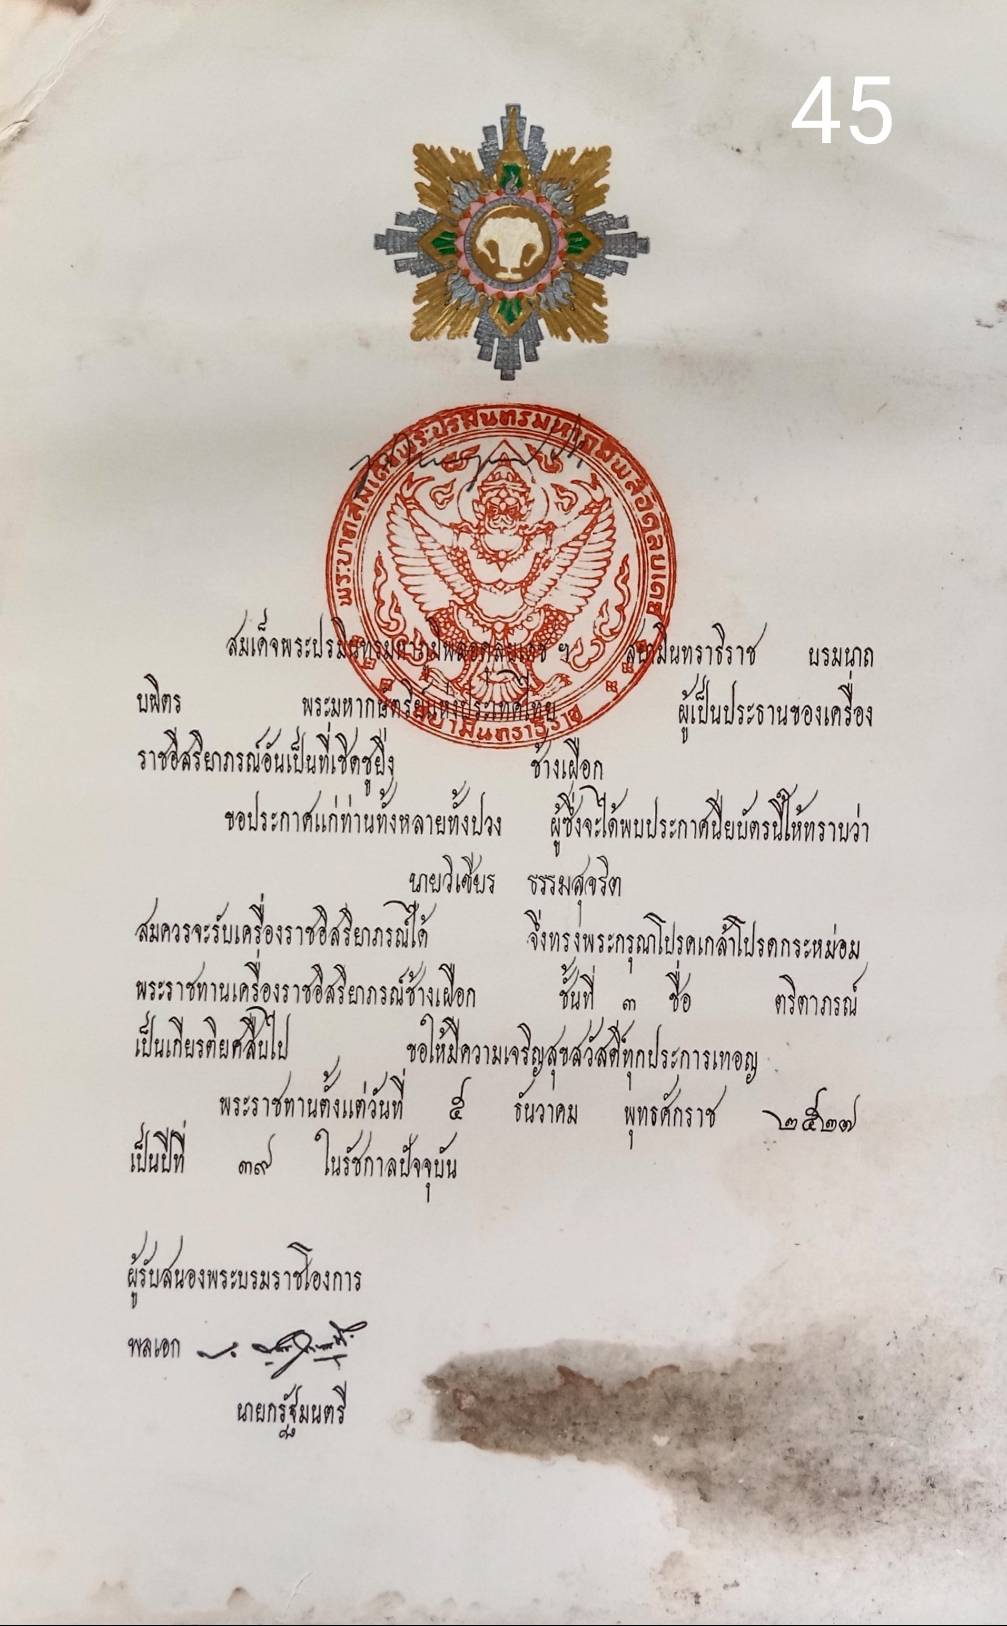 45
พระบาทสมเด็จพระปรมินทรมหาภูมิพลอดุลยเดช
สยามินทราธิราช
สมเด็จพระปรมินทรมหาภูมิพลอดุลยเดช ฯ สยามินทราธิราช บรมนาถ
บพิตร พระมหากษัตริย์แห่งประเทศไทย ผู้เป็นประธานของเครื่อง
ราชอิสริยาภรณ์อันเป็นที่เชิดชูยิ่ง ช้างเผือก
ขอประกาศแก่ท่านทั้งหลายทั้งปวง ผู้ซึ่งจะได้พบประกาศนียบัตรนี้ให้ทราบว่า
นายวิเชียร ธรรมสุจริต
สมควรจะรับเครื่องราชอิสริยาภรณ์ได้ จึ่งทรงพระกรุณโปรดเกล้าโปรดกระหม่อม
พระราชทานเครื่องราชอิสริยาภรณ์ช้างเผือก ชั้นที่ ๓ ชื่อ ตริตาภรณ์
เป็นเกียรติยศสืบไป ขอให้มีความเจริญสุขสวัสดิ์ทุกประการเทอญ
พระราชทานตั้งแต่วันที่ ๕ ธันวาคม พุทธศักราช ๒๕๒๗
เป็นปีที่ ๓๙ ในรัชกาลปัจจุบัน
ผู้รับสนองพระบรมราชโองการ
พลเอก
นายกรัฐมนตรี